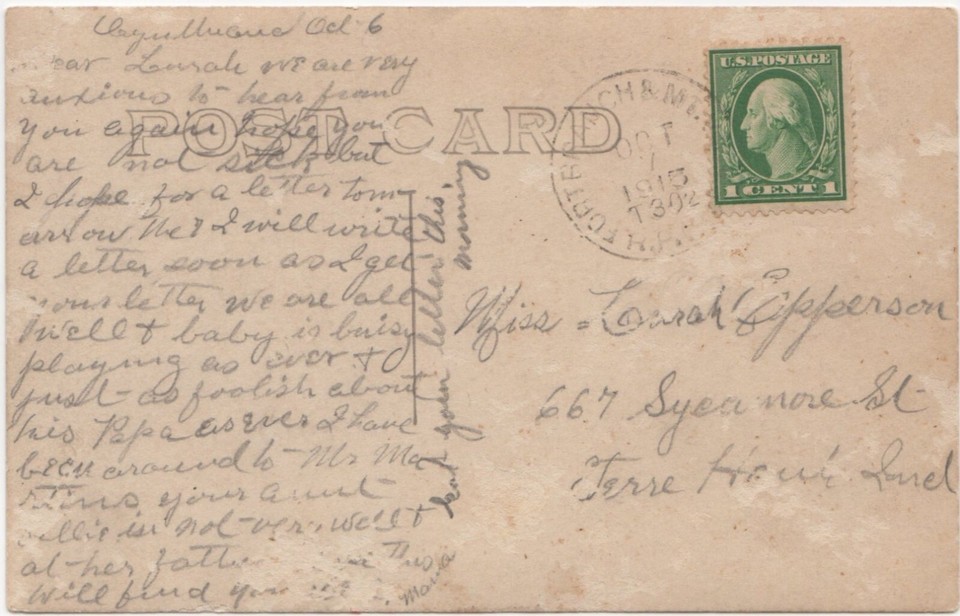 Oct 6
Dear Lurah we are very
anxious to hear from
you again hope you
are not sick but
I hope for a letter tom
arrow A.M & I will write
a letter soon as I get
your letter we are all
well & baby is buisy
playing as ever &
just as foolish about
his Papa as ever I have
been around to Mr Ma
rtins your aunt
ollie is not very well &
at her This
will find you
Mama
got your letter this
morning
POST CARD
OCT
7
1915
U.S. POSTAGE
1 CENT 1
Miss = Lurah Epperson
667 Sycamore St
Terre Haute Ind